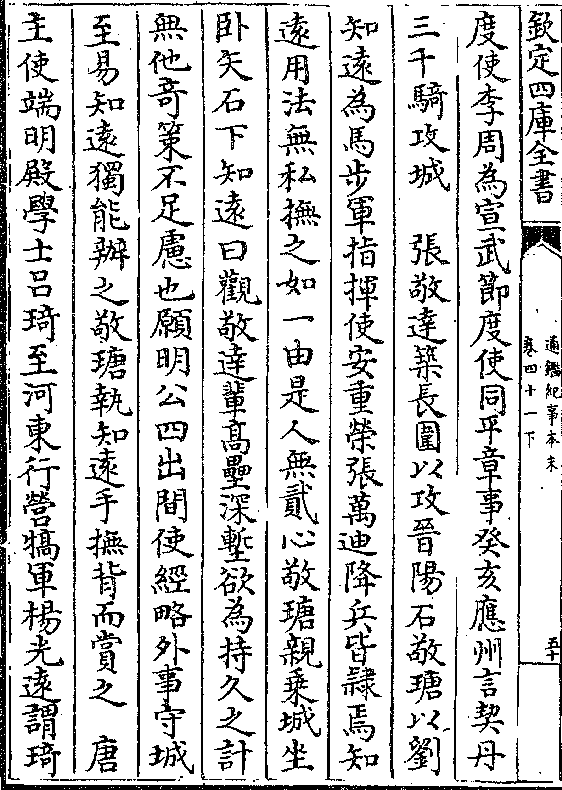 欽定四庫全書
通鑑紀事本末
卷四十一下
五十
度使李周為宣武節度使同平章事癸亥應州言契丹
三千騎攻城　張敬達築長圍以攻晉陽石敬瑭以劉
知遠為馬步軍指揮使安重榮張萬迪降兵皆隸焉知
遠用法無私撫之如一由是人無貳心敬瑭親乗城坐
卧矢石下知遠曰觀敬達輩髙壘深塹欲為持久之計
無他竒策不足慮也願明公四出間使經略外事守城
至易知遠獨能辦之敬瑭執知遠手撫背而賞之　唐
主使端明殿學士吕琦至河東行營犒軍楊光遠謂琦